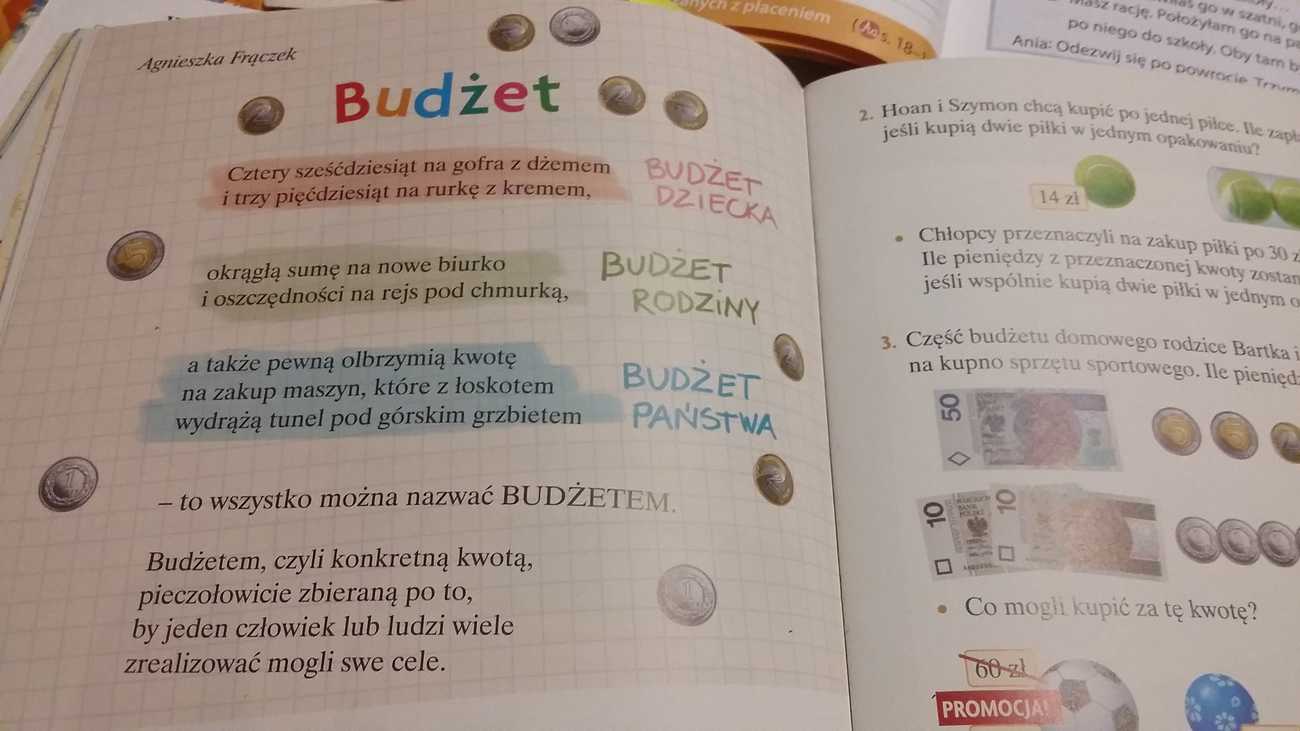 Agnieszka Frączek
Budżet
Cztery sześćdziesiąt na gofra z dżemem
i trzy pięćdziesiąt na rurkę z kremem,
BUDŻET
DZIECKA
okrągłą sumę na nowe biurko
i oszczędności na rejs pod chmurką,
BUDŻET
RODZINY
a także pewną olbrzymią kwotę
na zakup maszyn, które z łoskotem
wydrążą tunel pod górskim grzbietem
BUDŻET
PAŃSTWA
– to wszystko można nazwać BUDŻETEM.
Budżetem, czyli konkretną kwotą,
pieczołowicie zbieraną po to,
by jeden człowiek lub ludzi wiele
zrealizować mogli swe cele.
z płaceniem
s. 18
go w szatni,
rację. Położyłam go na
po niego do szkoły. Oby tam
Ania: Odezwij się po powrocie
2. Hoan i Szymon chcą kupić po jednej piłce. Ile
jeśli kupią dwie piłki w jednym opakowaniu?
14 zł
• Chłopcy przeznaczyli na zakup piłki po 30
Ile pieniędzy z przeznaczonej kwoty
jeśli wspólnie kupią dwie piłki w jednym
3. Część budżetu domowego rodzice Bartka i
na kupno sprzętu sportowego. Ile
50
10
10
• Co mogli kupić za tę kwotę?
60 zł
PROMOCJA!